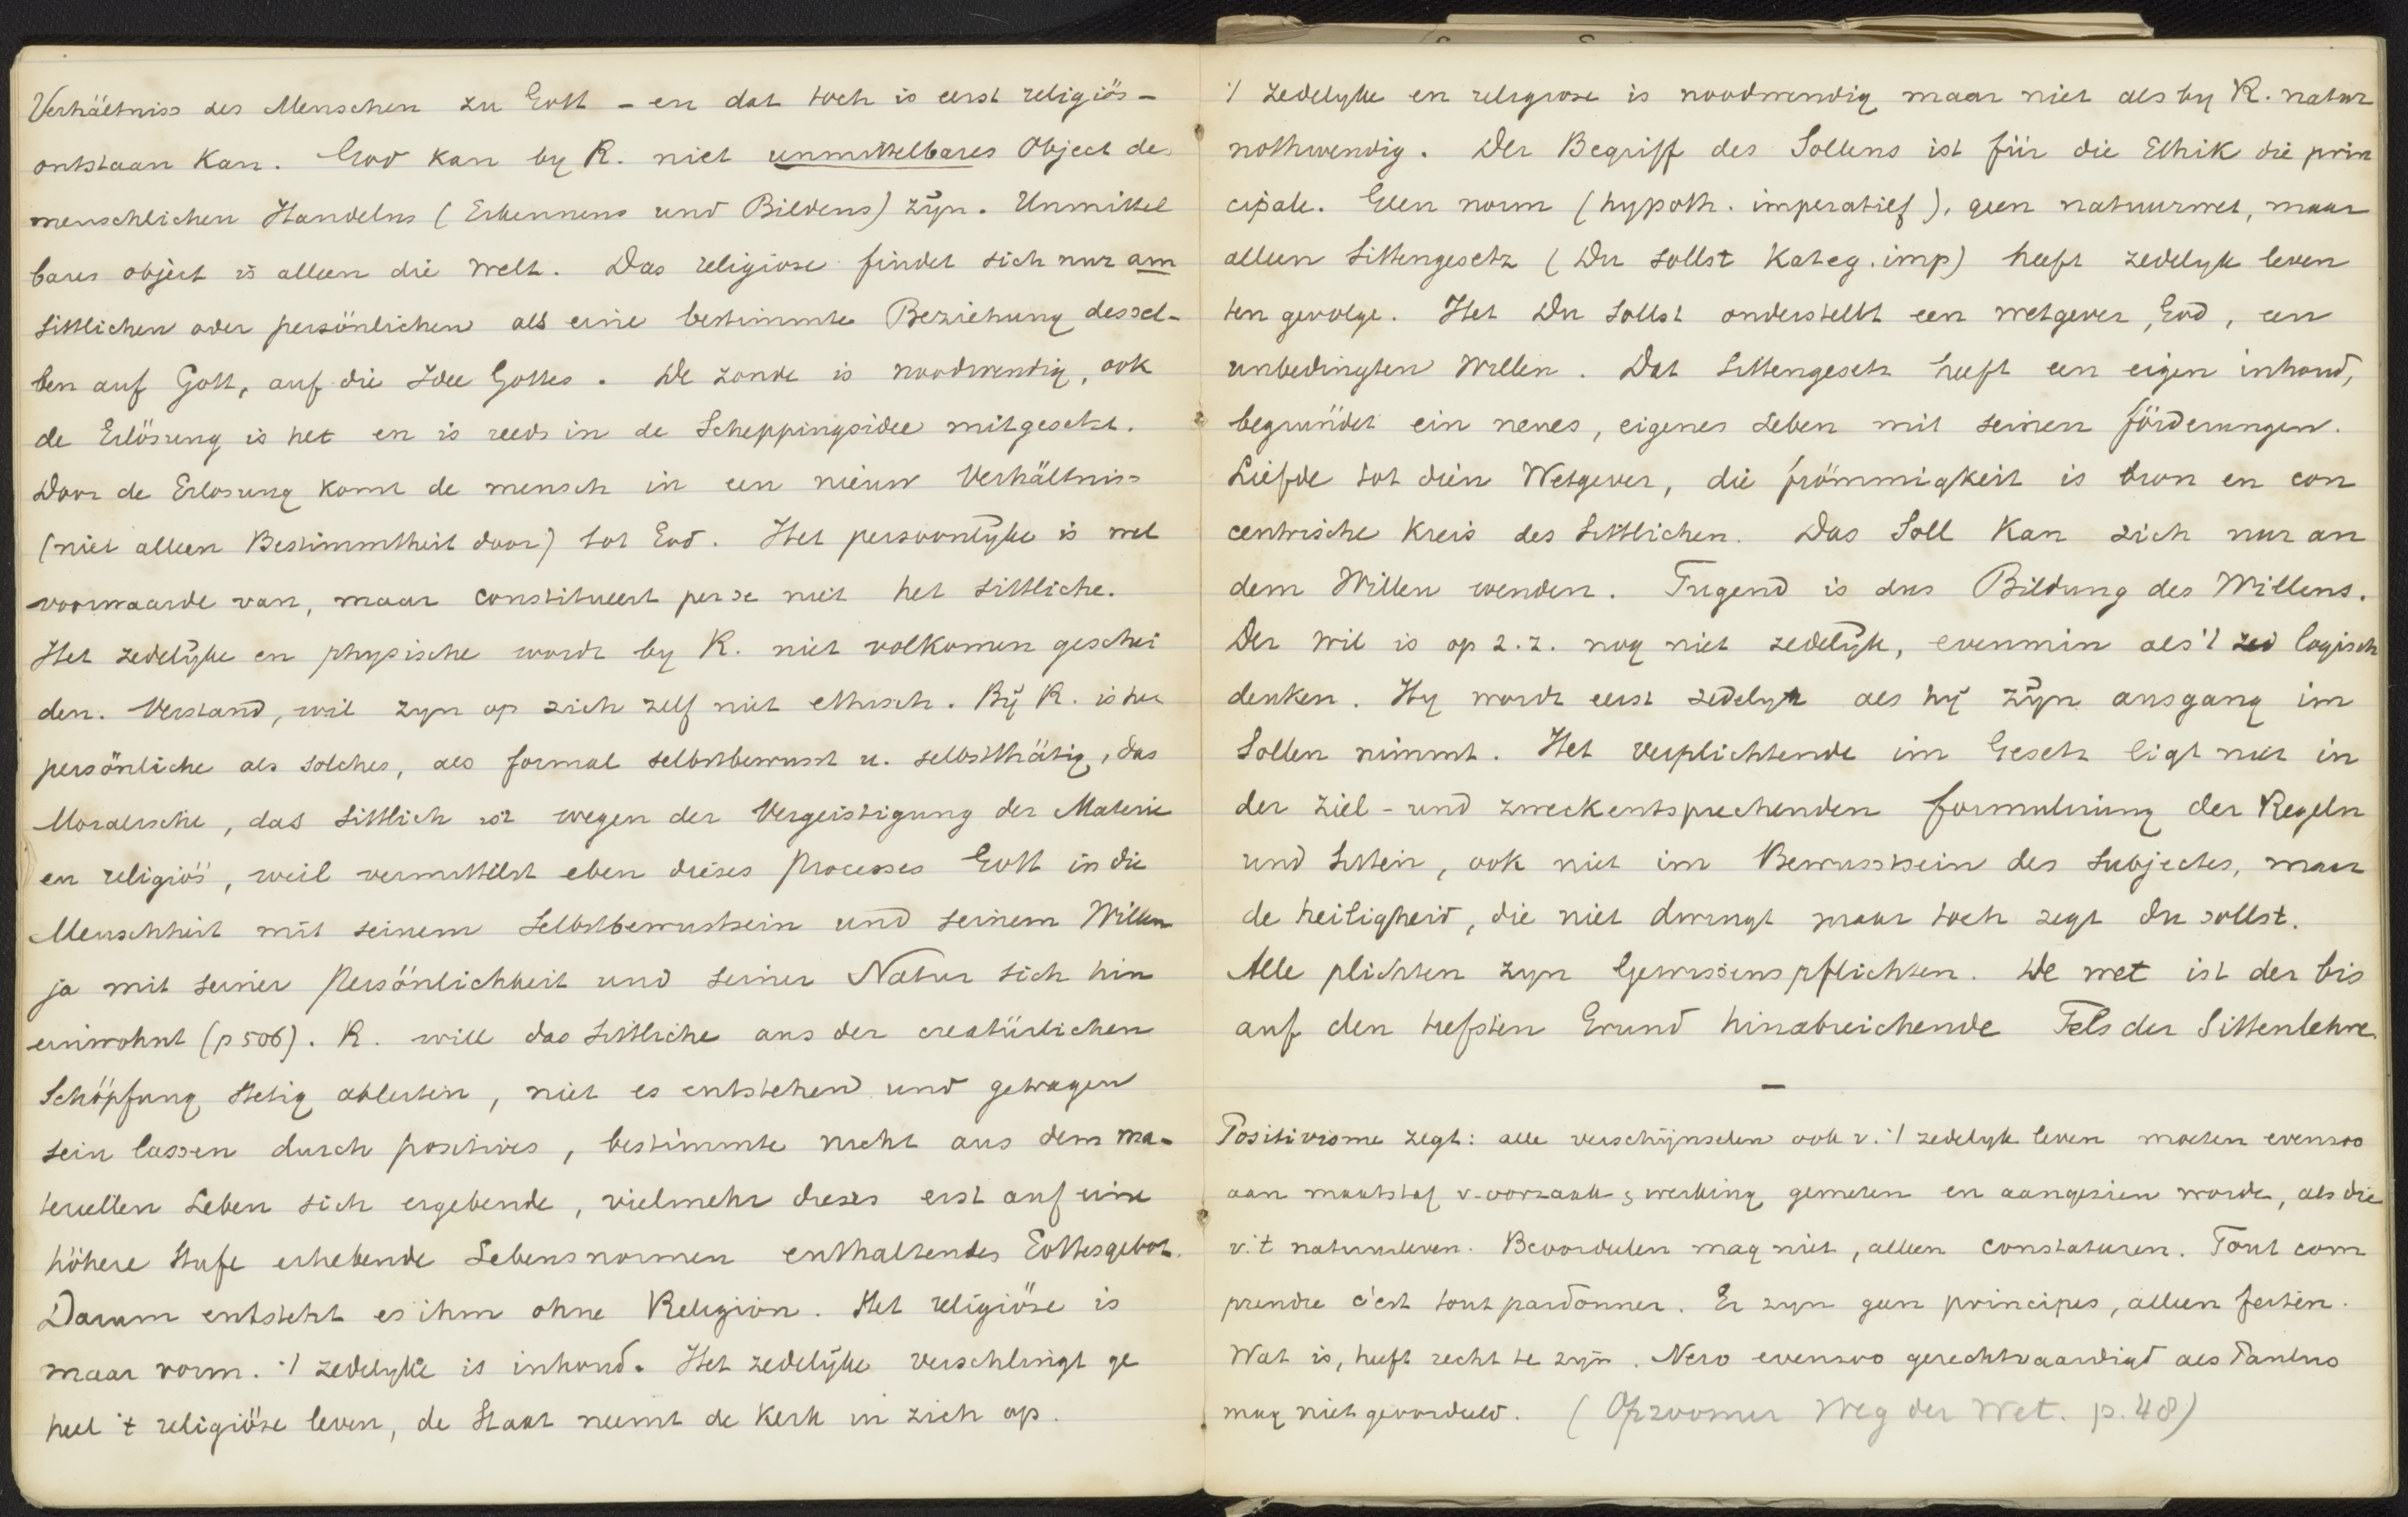 Verhältniss des Menschen zu Gott – en dat toch is eerst religiös –
ontstaan kan. God kan by R. niet unmittelbares Object des
menschlichen Handelns (Erkennens und Bildens) zÿn. Unmittel
bares object is alleen die Welt. Das religiose findet sich nur am
sittlichen oder persönlichen als eine bestimmte Beziehung dessel-
ben auf Gott, auf die Idee Gottes. De zonde is noodwendig, ook
de Erlösung is het en is reeds in de Scheppingsidee mitgesetzt.
Door de Erlosung komt de mensch in een nieuw Verhältniss
(niet alleen Bestimmtheit door) tot God. Het persoonlÿke is wel
voorwaarde van, maar constitueert per se niet het sittliche.
Het zedelÿke en physische wordt by R. niet volkomen geschei
den. Verstand, wil zyn op zich zelf niet ethisch. Bÿ R. is het
persönliche als solches, als formal selbstbewusst u. selbstthätig, das
Moralische, das sittlich ist wegen der Vergeistigung der Materie
en religiös, weil vermittelst eben dieses Processes Gott in die
Menschheit mit seinem Selbstbewustsein und seinem Willen
ja mit seiner Persönlichkeit und seiner Natur sich hin
einwohnt (p 506). R. will das Sittliche aus der creatürlichen
Schöpfung stetig ableiten, niet es entstehen und getragen
sein lassen durch positives, bestimmte nicht aus dem ma-
teriellen Leben sich ergebende, vielmehr dieses erst auf eine
höhere Stufe erhebende Lebensnormen enthaltendes Gottesgebot.
Darum entsteht es ihm ohne Religion. Het religiöse is
maar vorm. 't zedelyke is inhoud. Het zedelÿke verschlingt ge
heel 't religiöse leven, de Staat neemt de Kerk in zich op.
't zedelyke en religiose is noodwendig maar niet als by R. natur
nothwendig. Der Begriff des Sollens ist für die Ethik die prin
cipale. Geen norm (hypoth. imperatief), geen natuurwet, maar
alleen Sittengesetz (Du sollst Kateg. imp) heeft zedelyk leven
ten gevolge. Het Du sollst onderstelt een wetgever, God, een
unbedingten Willen. Dat Sittengesetz heeft een eigen inhoud,
begründet ein neues, eigenes Leben mit seinen förderungen.
Liefde tot dien Wetgever, die frömmigkeit is bron en con
centrische Kreis des Sittlichen. Das Soll kan sich nur an
dem Willen wenden. Tugend is dus Bildung des Willens.
Der wil is op z.z. nog niet zedelÿk, evenmin als 't zed logisch
denken. Hy wordt eerst zedelyk als hÿ zÿn ausgang im
Sollen nimmt. Het verplichtende im Gesetz ligt niet in
der ziel- und zweckentsprechenden formulirung der Regeln
und Sitten, ook niet im Bewusstsein des Subjectes, maar
de heiligheid, die niet dwingt maar toch zegt du sollst.
Alle plichten zyn Gewissenspflichten. De wet ist der bis
auf den tiefsten Grund hinabreichende Fels der Sittenlehre.
—
Positivisme zegt: alle verschÿnselen ook v. 't zedelyk leven moeten evenzoo
aan maatstaf v. oorzaak & werking gemeten en aangezien worde, als die
v. 't natuurleven. Beoordeelen mag niet, alleen constateeren. Tout com
prendre c'est tout pardonner. Er zyn geen principes, alleen feiten.
Wat is, heeft recht te zÿn. Nero evenzoo gerechtvaardigd als Paulus
mag niet geoordeeld. (Opzoomer Weg der Wet. p. 48)